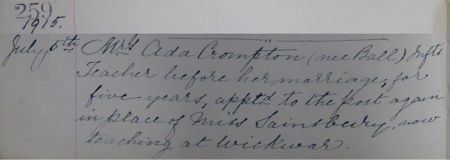 259
1915.
July 6th Mrs Ada Crompton (nee Ball) Infts
Teacher before her marriage, for
five years, apptd to the post again
in place of Miss Sainsbury, now
teaching at Wickwar.